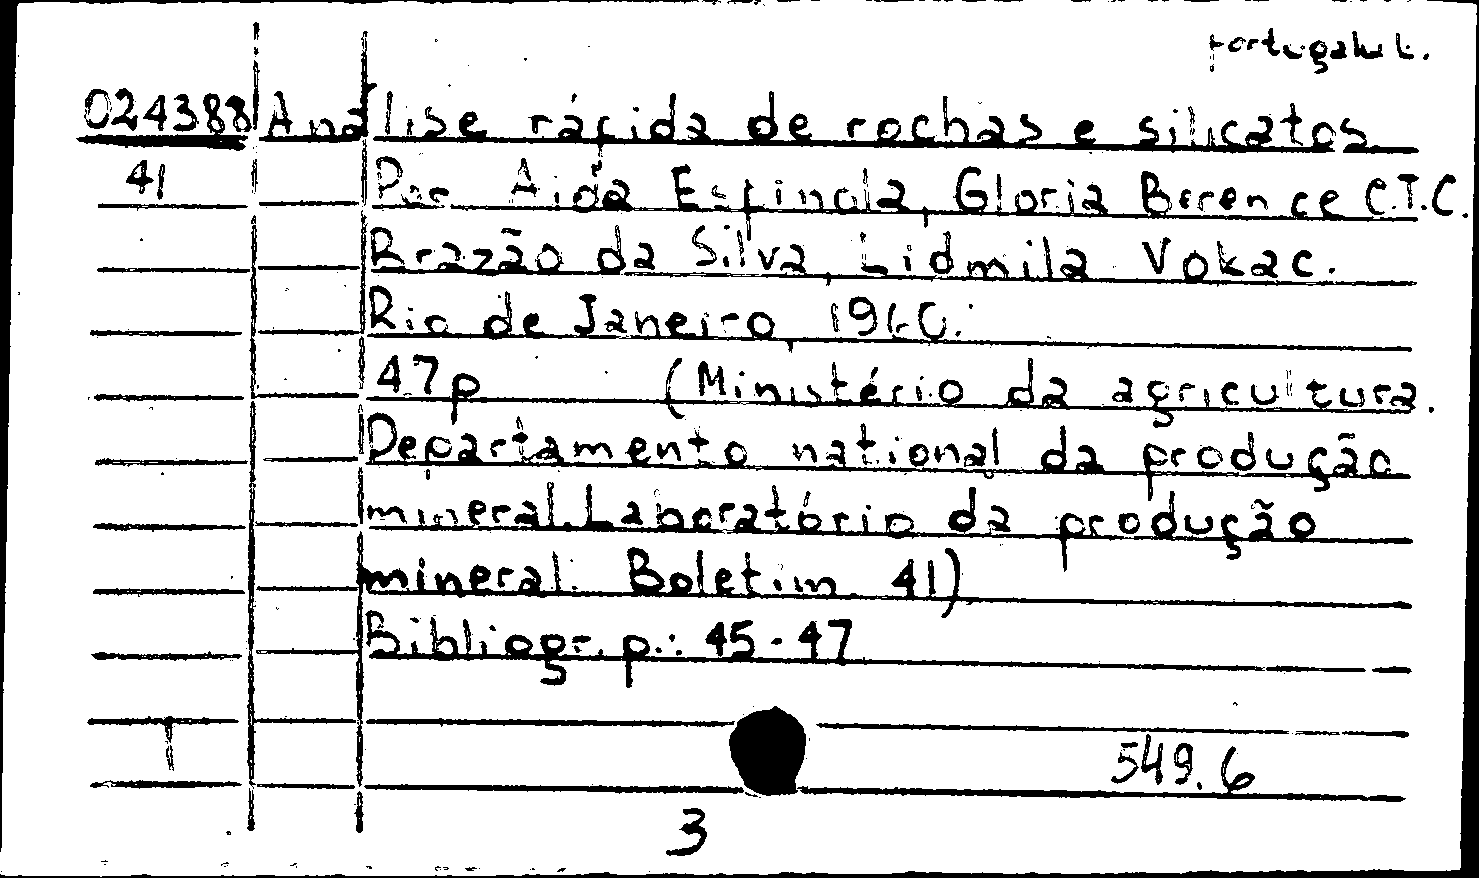 portugalul.
024388 Análise rápida de rochas e silicatos
41 Por Aida Espinola, Gloria Berence C.T.C.
Brazão da Silva, Lidmila Vokac.
Rio de Janeiro, 1960.
47p (Ministério da agricultura.
Departamento national da produção
mineral. Laboratório da produção
mineral. Boletim 41)
Bibliogr. p.: 45-47
T 549.6
3